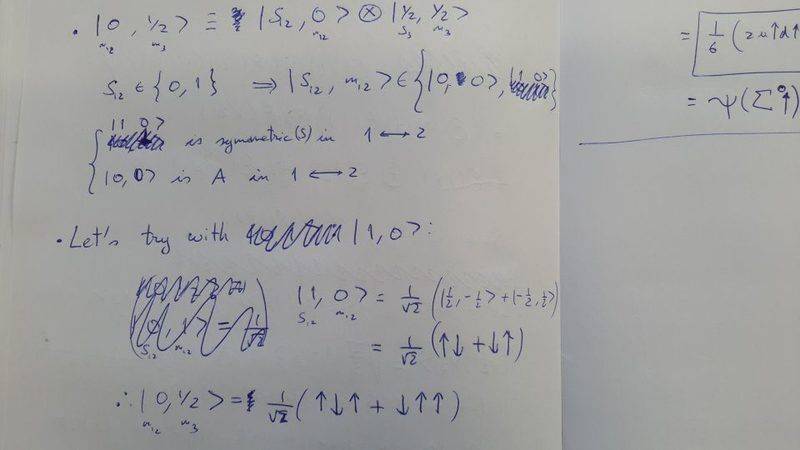 · |0, 1/2> ≡ |S₁₂, 0> ⊗ |1/2, 1/2>
m₁₂ m₃ m₁₂ S₃ m₃
S₁₂ ∈ {0, 1} ⇒ |S₁₂, m₁₂> ∈ {|0, 0>, |1 0>}
{ |1 0> is symmetric (S) in 1 ↔ 2
|0, 0> is A in 1 ↔ 2
· Let's try with |1, 0>:
|1, 0> = 1/√2 (|½, -½> + |-½, ½>)
S₁₂ m₁₂
= 1/√2 (↑↓ + ↓↑)
∴ |0, 1/2> = 1/√2 (↑↓↑ + ↓↑↑)
m₁₂ m₃
= 1/6 (2u↑d↑
= ψ(Σ⁰↑)